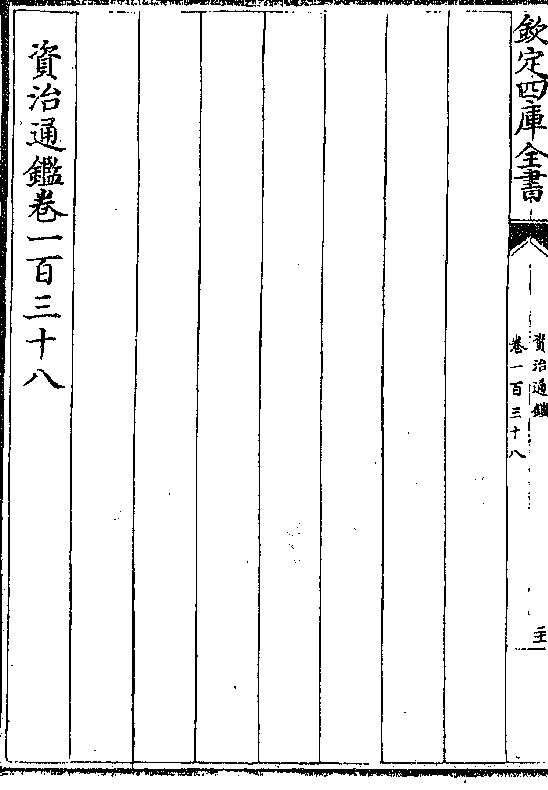 欽定四庫全書
資治通鑑
卷一百三十八
資治通鑑卷一百三十八